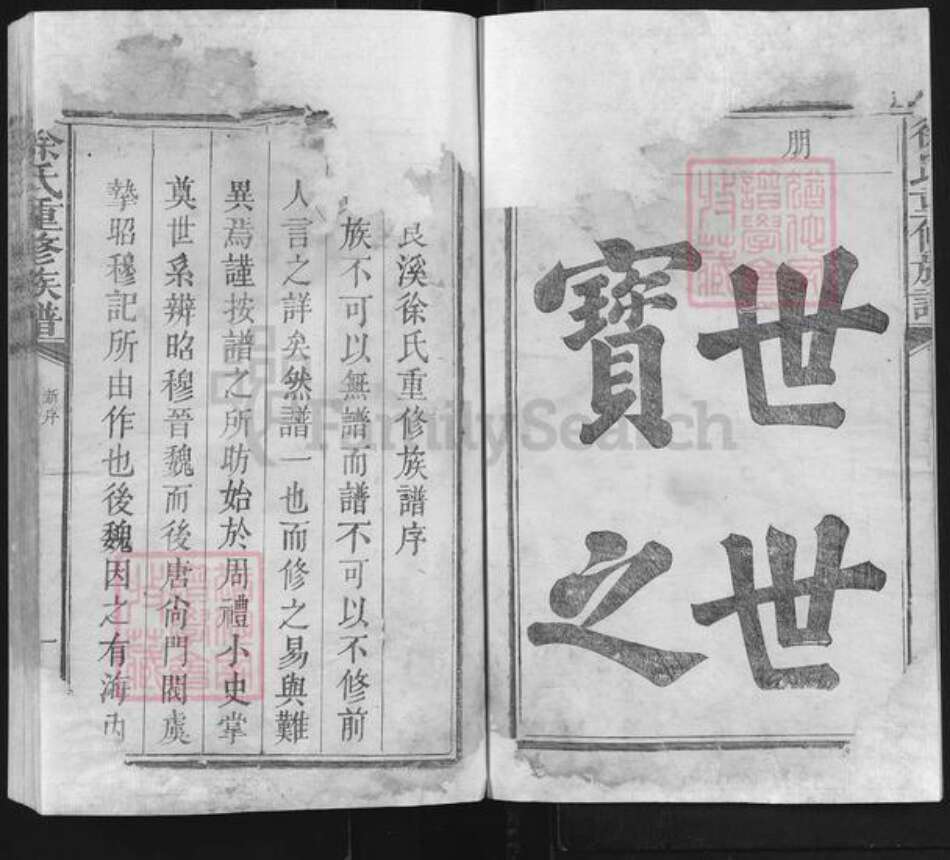 朋
世世
寶之
徐氏重修族譜
艮溪徐氏重修族譜序
族不可以無譜而譜不可以不修前
人言之詳矣然譜一也而修之易與難
異焉謹按譜之所昉始於周禮小史掌
奠世系辨昭穆晉魏而後唐尙門閥虞
摯昭穆記所由作也後魏因之有海內
徐氏重修族譜
新序
一
FamilySearch